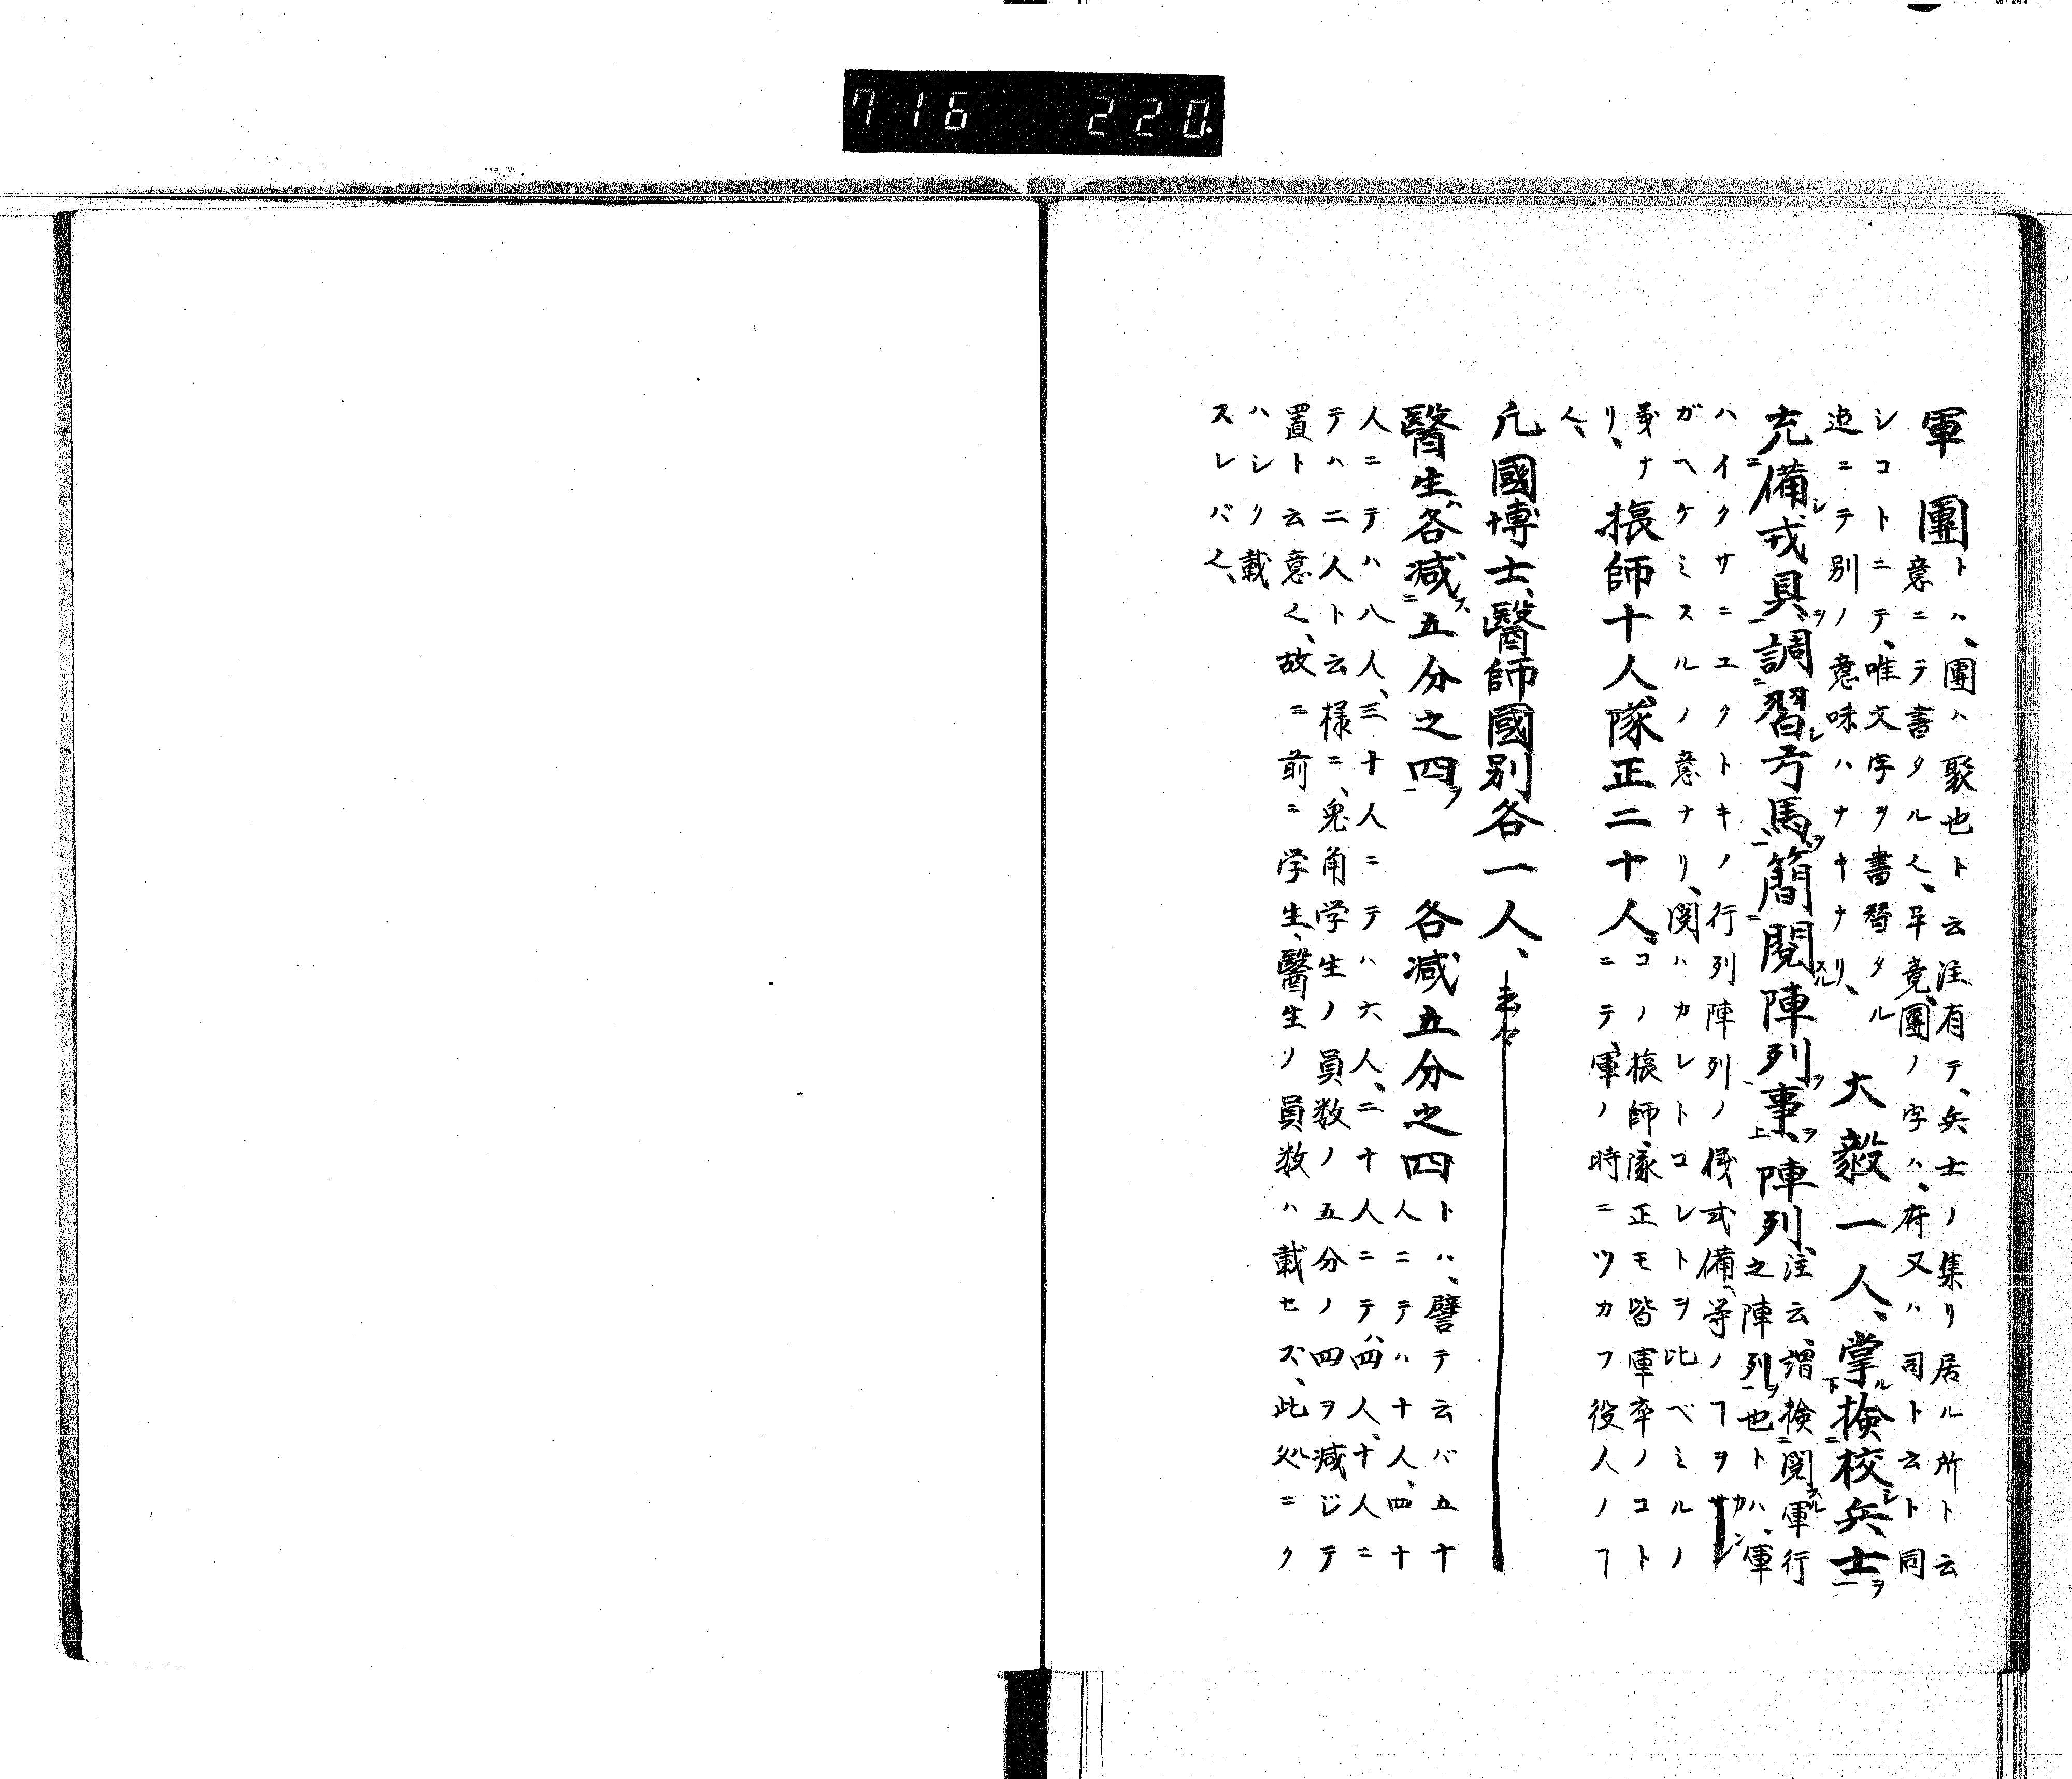 716 220.
軍團トハ、團ハ聚也ト云注有テ、兵士ノ集リ居ル所ト云
意ニテ書タル〱、畢竟、團ノ字ハ、府又ハ司ト云ト同
シコトニテ、唯文字ヲ書替タル
迄ニテ別ノ意味ハナキナリ、 大毅一人、掌ル檢校シ兵士ヲ
充備シ戎具ヲ、調習シ弓馬ヲ簡閲スル陣列ヲ事ヲ、陣列、注云、謂檢閲スル軍行
之陣列ヲ也トハ、軍
ハイクサニユクトキノ行列陣列ノ儀式備ヘ等ノヿヲカン
ガヘケミスルノ意ナリ、閲ハカレトコレトヲ比ベミルノ
義ナリ、 振師十人、隊正二十人、コノ振師、隊正モ皆軍卒ノコト
ニテ、軍ノ時ニツカフ役人ノヿ
〱、
凡國博士、醫師國別各一人、云々
醫生ハ各減ス五分之四ヲ 各減五分之四トハ、譬テ云バ五十
人ニテハ十人、四十
人ニテハ八人、三十人ニテハ六人、二十人ニテハ四人、十人ニ
テハ二人ト云様ニ、兔角学生ノ員数ノ五分ノ四ヲ減ジテ
置ト云意〱、故ニ前ニ学生、醫生ノ員数ハ載セズ、此処ニク
ハシク載
スレバ〱、